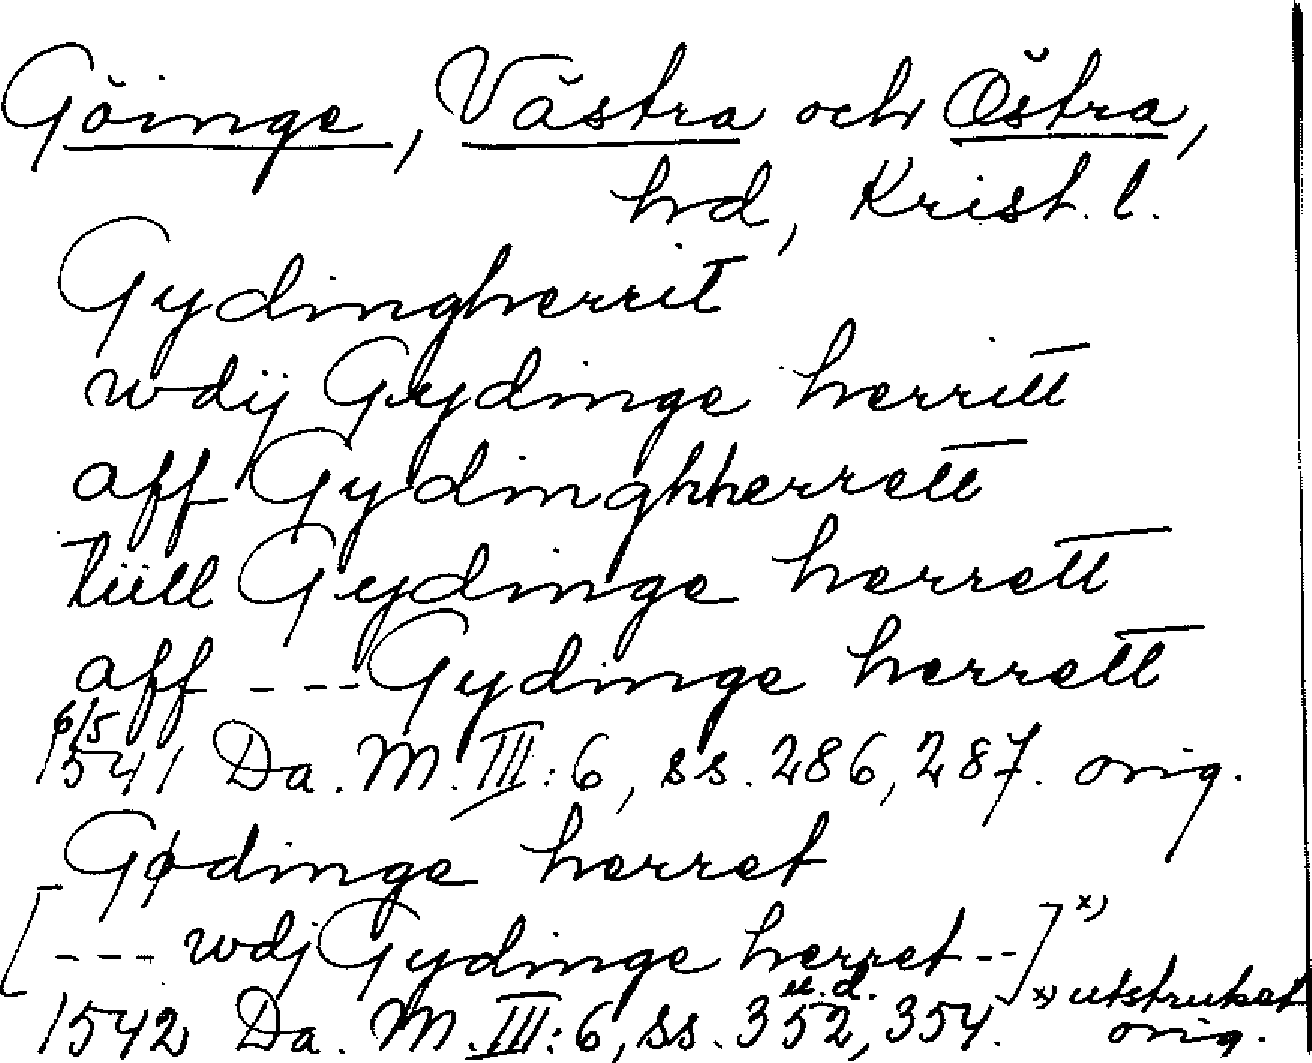 Göinge, Västra och Östra,
hd, Krist. l.
Gydingherrit
wdij Gydinge herritt
aff Gydinghherrett
tiill Gydinge herrett
aff --- Gydinge herrett
6/5
1541 Da. M. III: 6, ss. 286, 287. orig.
Gødinge herret
[--- wdj Gydinge herret --] x)
u.d.
1542 Da. M. III: 6, ss. 352, 354. x) utstruket
orig.